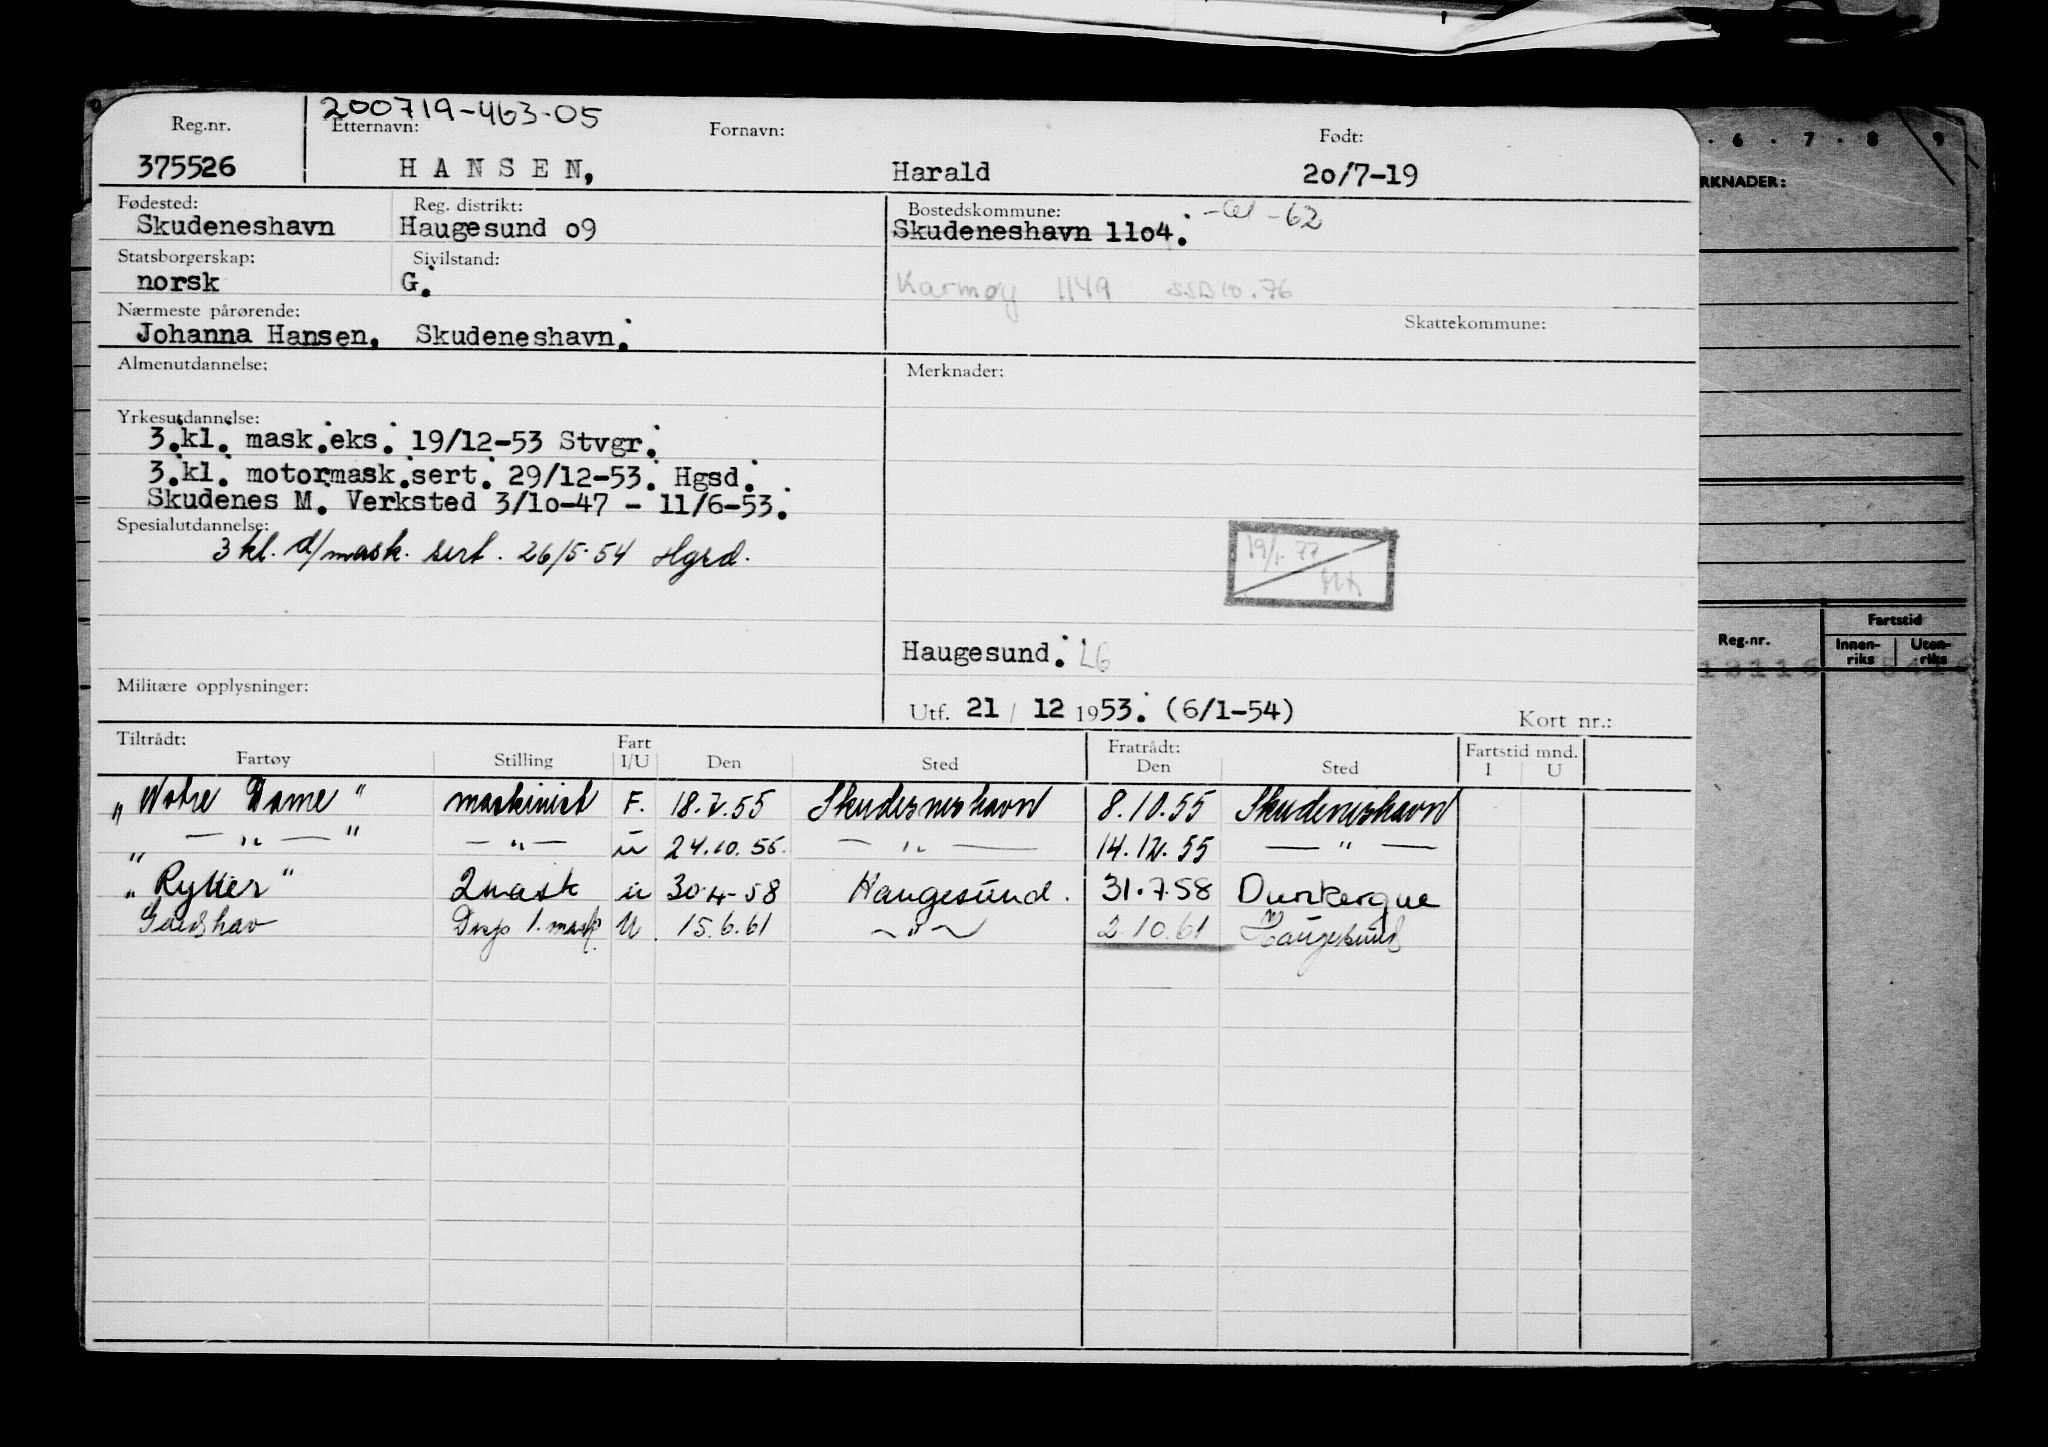 200719-463-05
Reg.nr. Etternavn: Fornavn: Født:
375526 HANSEN, Harald 20/7-19
Fødested: Reg. distrikt: Bostedskommune:
Skudeneshavn Haugesund 09 Skudeneshavn 1104. -62
Statsborgerskap: Sivilstand:
norsk G. Karmøy 1149 SSB 10.76
Nærmeste pårørende: Skattekommune:
Johanna Hansen, Skudeneshavn.
Almenutdannelse: Merknader:
Yrkesutdannelse:
3.kl. mask.eks. 19/12-53 Stvgr.
3.kl. motormask.sert. 29/12-53. Hgsd.
Skudenes M. Verksted 3/10-47 - 11/6-53.
Spesialutdannelse:
3 kl. d/mask. sert. 26/5-54 Hgsd.
19/1-77
Haugesund. 26
Militære opplysninger:
Utf. 21/12 1953. (6/1-54) Kort nr.:
Tiltrådt: Fratrådt: Fartstid mnd.
Fartøy Stilling Fart I/U Den Sted Den Sted I U
"Notre Dame" maskinist F. 18.7.55 Skudesneshavn 8.10.55 Skudeneshavn
" — " — " — " — u 24.10.55. — " — 14.12.55 — " —
"Rytter" 2 mask u 30.4-58 Haugesund. 31.7.58 Dunkerque
Disp 1. mask. U 15.6.61 — " — 2.10.61 Haugesund
6 . 7 . 8 . 9
RKNADER:
Reg.nr. Fartstid
Innen-riks Uten-riks